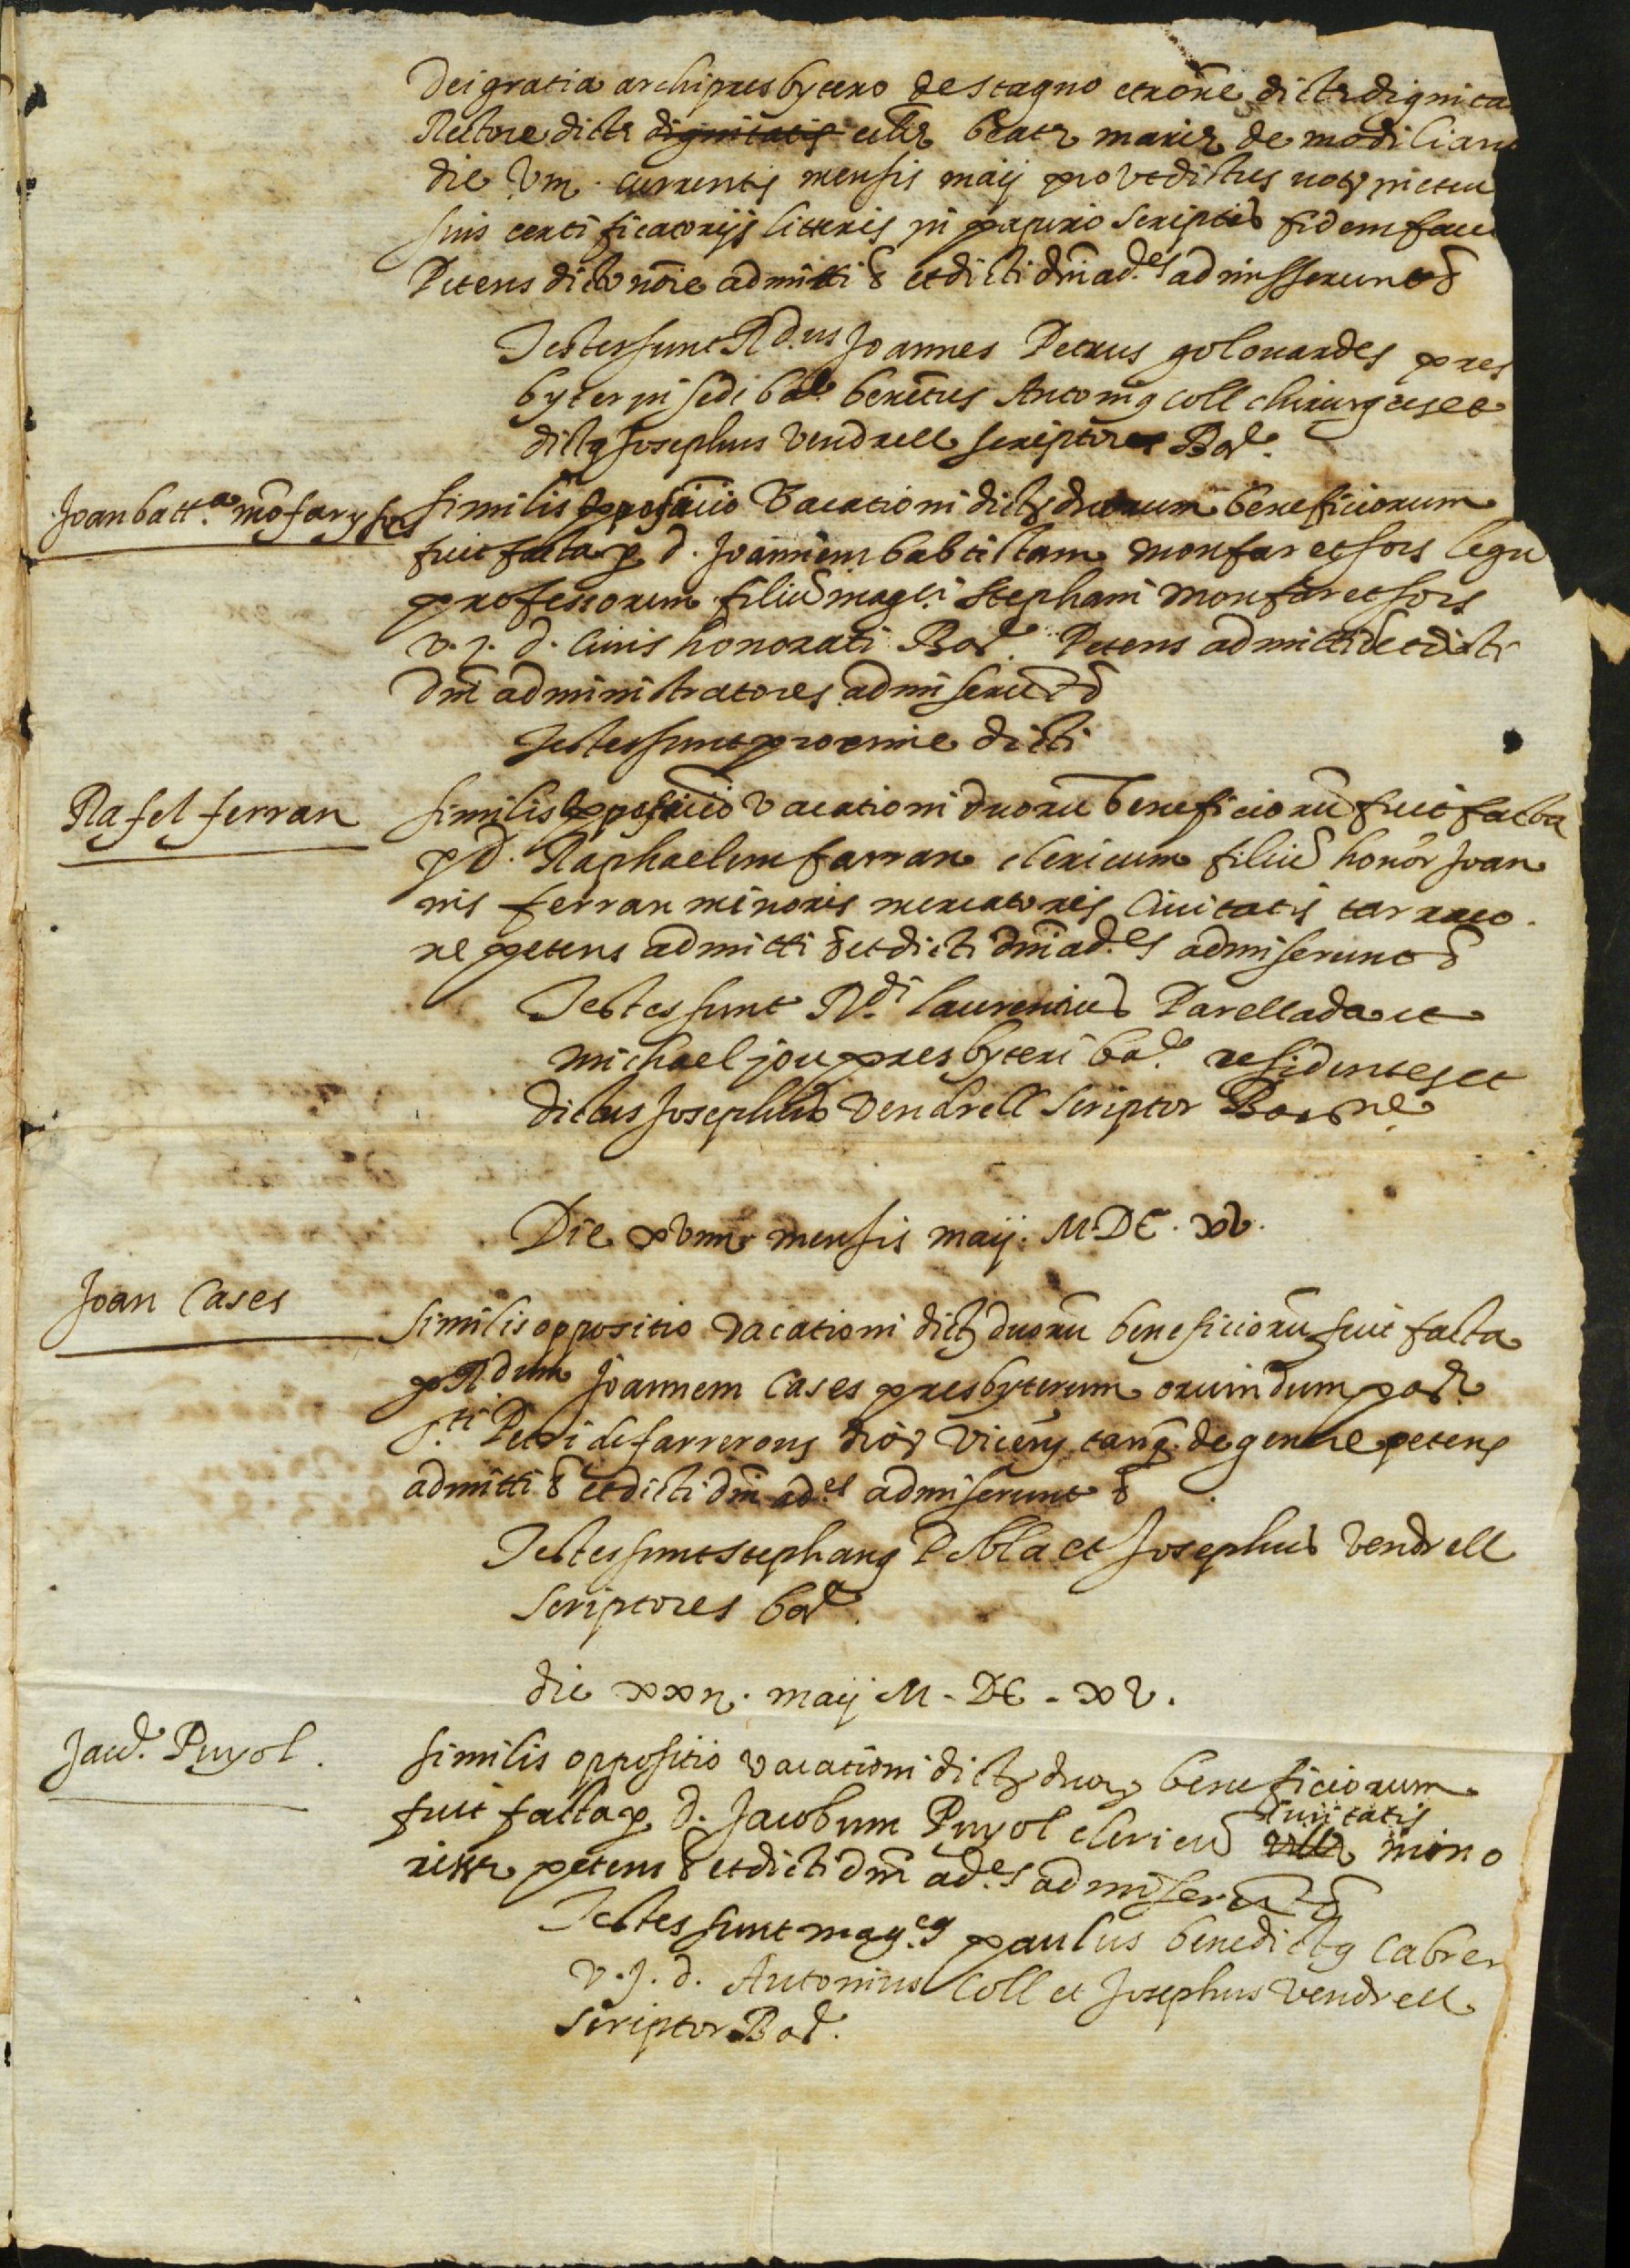 Dei gratia archipresbytero de stagno et rõne dictę dignita
Rectore dictę dignitatis ecclię beatę marię de modiliano
die Vııı. currentis mensis maij prout dictus notus
suis certificatorijs litteris in papiro scriptis fidem
Petens dicto nõie admitti & et dicti dñi ad.es admisserunt &
Testes sunt R.dus Joannes Petrus golorardes pres
byter in sedi bar.e benetus Antonius coll chirurgus et
dictus Josephus Vendrell scriptor Bar.e
Joan batt.a mõfar y sors
similis oppositio Vacationi dictor duorum beneficiorum
fuit facta p d. Joannem babtistam monfar et sors legu
professorum filiũ mag.ci Stephani monfar et sors
v. j. d. civis honorati Bar.e Petens admitti & et dicti
dñi administratores admiserũt &
Testes sunt proxime dicti
Rafel ferran
similis oppositio vacationi duorũ beneficiorũ fuit facta
p d. Raphaelem farran clericum filiũ honor Joan
nis ferran minoris mercatoris Civitatis tarraco.
ne petens admitti & et dicti dñi ad.es admiserunt &
Testes sunt R.di laurentius Parellada et
michael jou presbyteri bar.e residentes et
dictus Josephus Vendrell scriptor Barne.
Die xvııı mensis maij. M. DC. xv.
Joan Cases
Similis oppositio vacationi dictor duorũ beneficiorũ fuit facta
p R.dum Joannem Cases presbyterum oriundum par.
s.ti Petri de farrerons dioc Vicen̄ tanq. de genere petens
admitti & et dicti dñi ad.es admiserunt &
Testes sunt stephanus Pobla et Josephus Vendrell
scriptores bar.e
die xxıı. maij M. DC. xv.
Jaud. Puyol.
similis oppositio vacationi dictor duor beneficiorum
fuit facta p d. Jacobum Puyol clericũ villę Civitatis mino
rissę petens & et dicti dñi ad.es admiserũt &
Testes sunt mag.cus paulus benedictus Cabrer
v. j. d. Antonius Coll et Josephus Vendrell
scriptor Bar.e